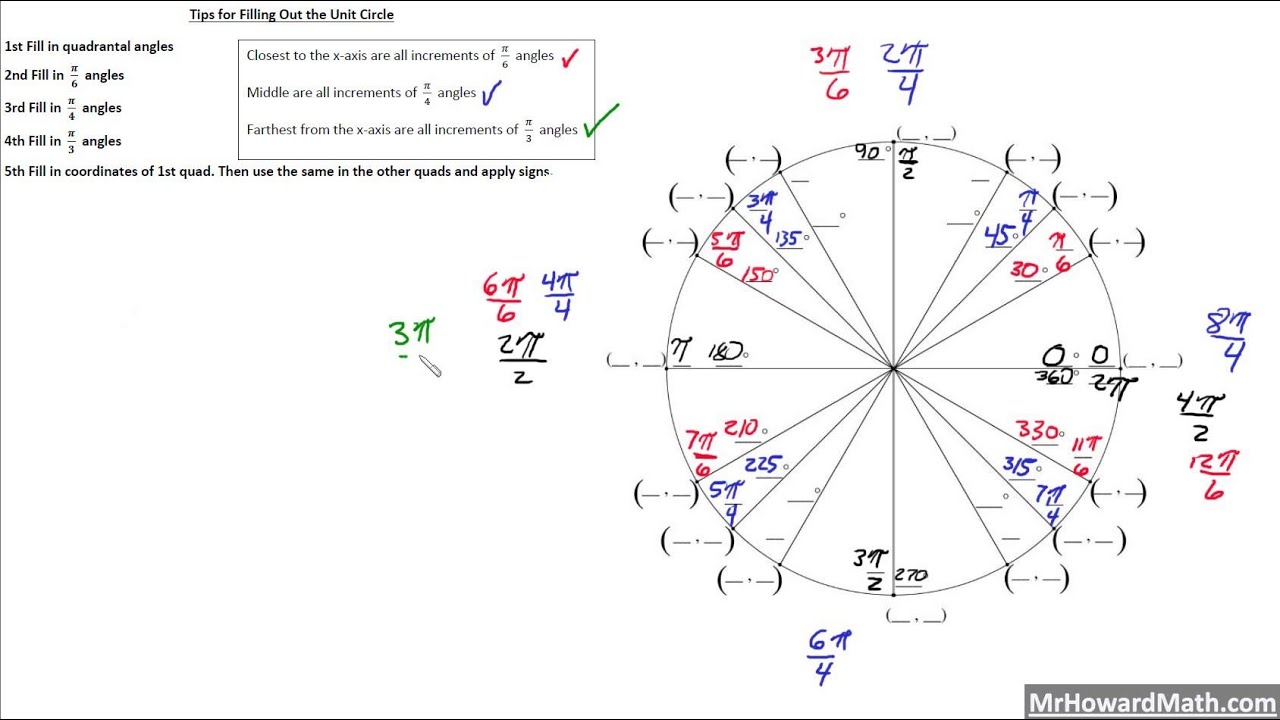 Tips for Filling Out the Unit Circle
1st Fill in quadrantal angles
2nd Fill in π/6 angles
3rd Fill in π/4 angles
4th Fill in π/3 angles
5th Fill in coordinates of 1st quad. Then use the same in the other quads and apply signs.
Closest to the x-axis are all increments of π/6 angles ✓
Middle are all increments of π/4 angles ✓
Farthest from the x-axis are all increments of π/3 angles ✓
3π/6 2π/4
(__ , __)
90° π/2
(__ , __) (__ , __)
__ __
(__ , __) (__ , __)
3π/4 __° __° π/4
135° 45°
(__ , __) (__ , __)
5π/6 π/6
150° 30°
6π/6 4π/4
3π 2π/2
(__ , __) π 180° 0° 0 (__ , __)
360° 2π
8π/4
4π/2
12π/6
7π/6 210° 330° 11π/6
225° 315°
(__ , __) 5π/4 __° __° 7π/4 (__ , __)
(__ , __) __ __ (__ , __)
3π/2 270
(__ , __) (__ , __)
(__ , __)
6π/4
MrHowardMath.com